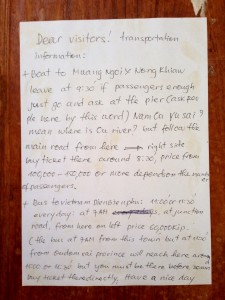 Dear visitors! transportation
Information:
+ Boat to Muang Ngoi & Nong Khiaw
leave at 9:30 if passengers enough
just go and ask at the pier (Lao people
ple here by this word) Nam Ou yu sai?
mean where is Ou river? but follow the
main road from here → right side
buy ticket there around 8:30, price from
100,000 - 150,000 or more depend on the number
of passengers.
+ Bus to Vietnam Dienbienphu: 10:00 or 11:30
everyday: at 7AM at junction
road, from here on left price 60,000 kip.
(the bus at 7AM from this town but at
from Oudomxai province will reach here
10:00 or 11:30 but you must be there before
buy ticket there directly. Have a nice day